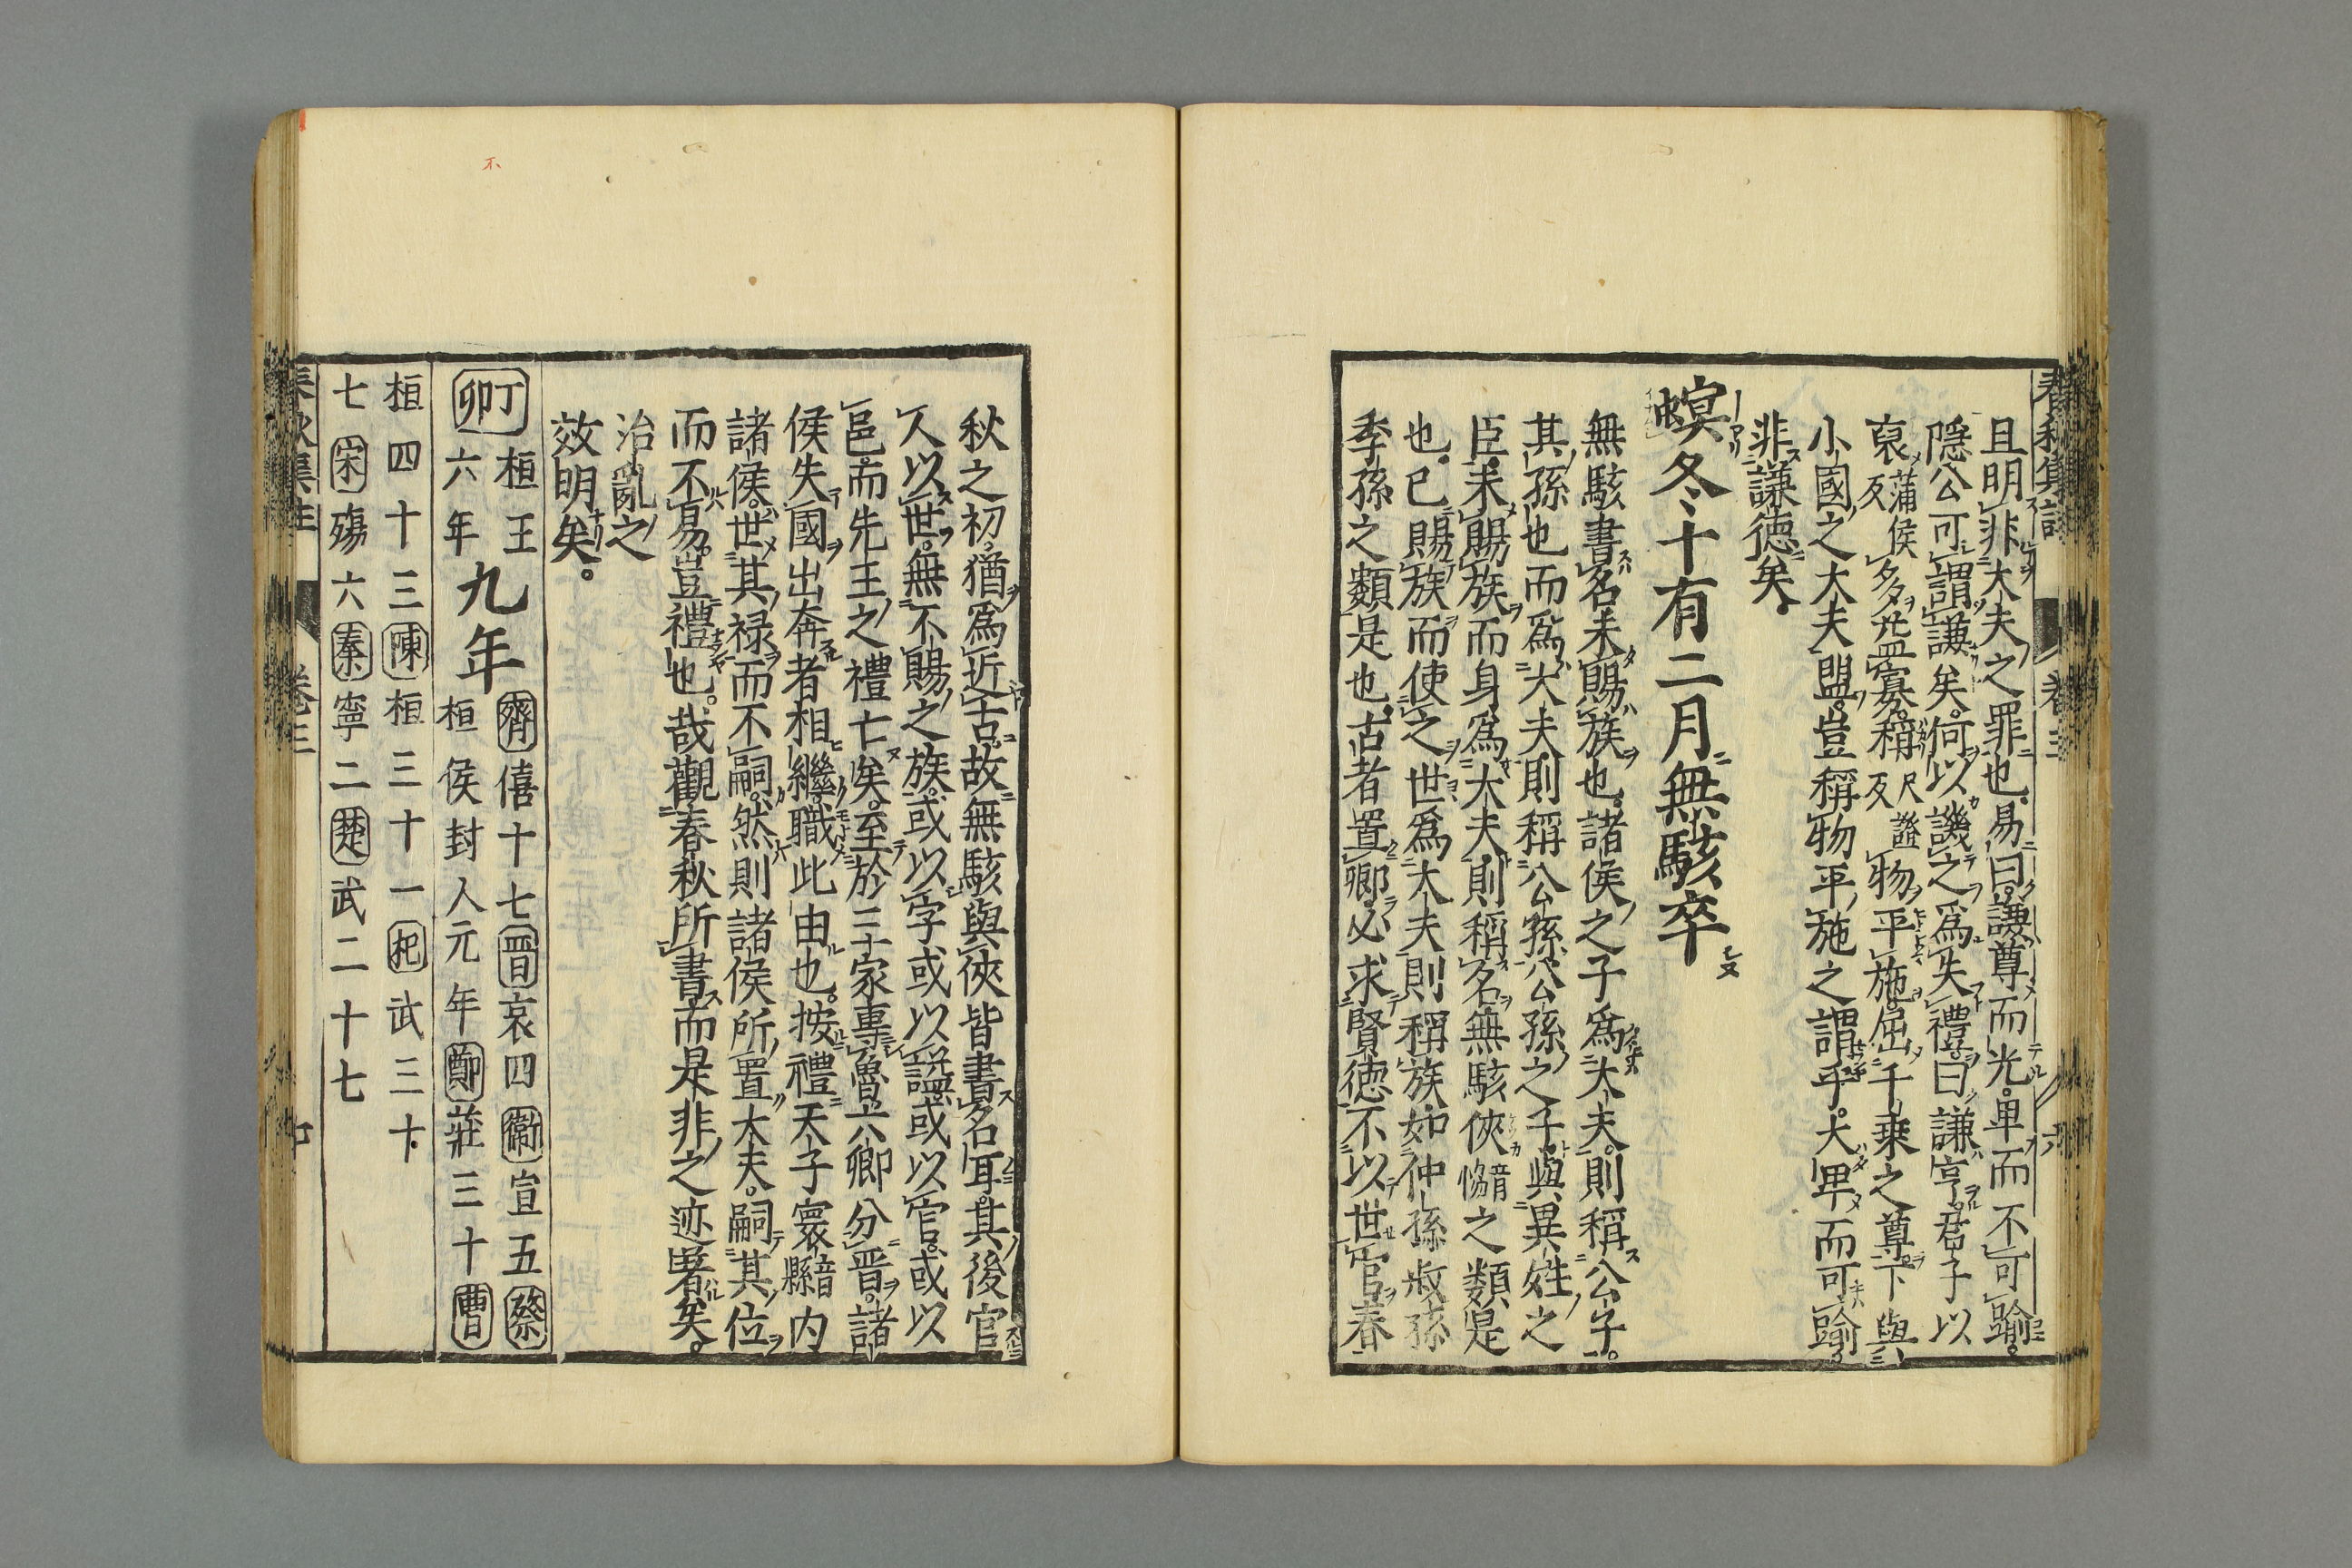 且明非大夫之罪也易曰謙尊而光卑而不可踰。
隱公可謂謙矣何以譏之爲失禮曰謙亨君子以
裒蒲侯反多益寡稱尺證反物平施屈千乘之尊下與
小國之大夫盟豈稱物平施之謂乎大卑而可踰。
非謙德矣。
螟冬十有二月無駭卒
無駭書名未賜族也諸侯之子爲大夫則稱公子。
其孫也而爲大夫則稱公孫公孫之子與異姓之
臣未賜族而身爲大夫則稱名無駭俠音協之類是
也已賜族而使之世爲大夫則稱族如仲孫叔孫
季孫之類是也古者置卿必求賢德不以世官春
秋之初猶爲近古故無駭與俠皆書名耳其後官
人以世無不賜之族或以字或以諡或以官或以
邑而先王之禮亡矣至於三家專魯六卿分晉諸
侯失國出奔者相繼職此由也按禮天子寰音縣内
諸侯世其禄而不嗣然則諸侯所置大夫嗣其位
而不易豈禮也哉觀春秋所書而是非之迹著矣。
治亂之
效明矣。
丁卯桓王六年九年齊僖十七晉哀四衞宣五蔡
桓侯封人元年鄭莊三十曹
桓四十三陳桓三十一杞武三十
七宋殤六秦寧二楚武二十七
春秋集註 卷三